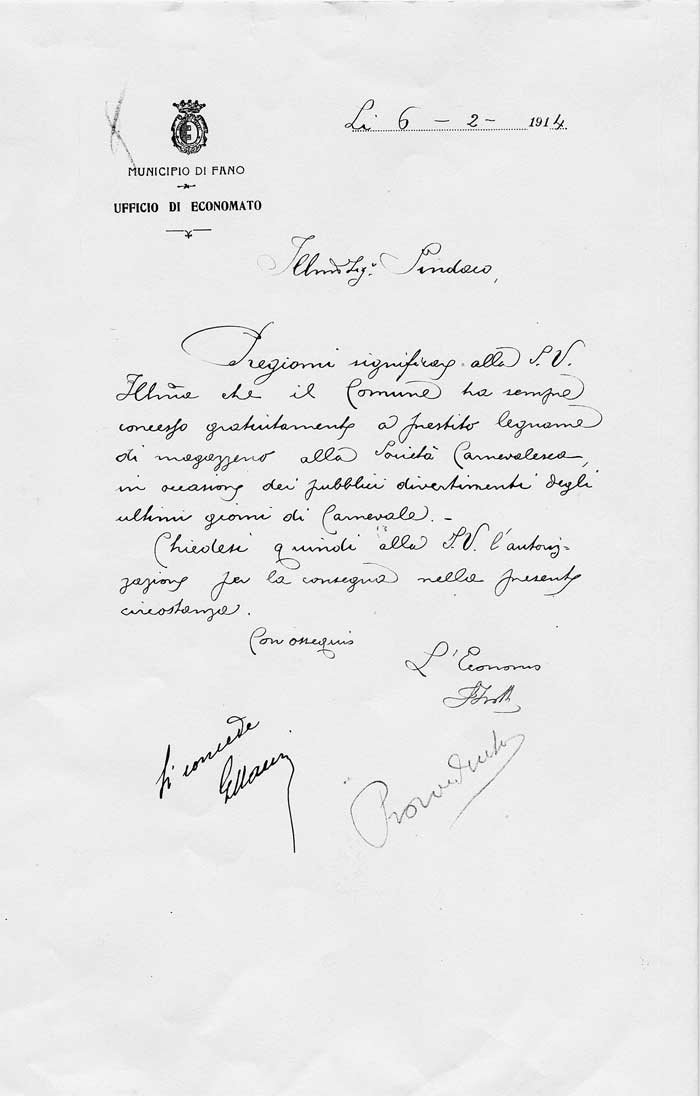 Li 6 - 2 - 1914
MUNICIPIO DI FANO
UFFICIO DI ECONOMATO
Illmo Sigr. Sindaco,
Pregiomi significare alla S.V.
Illma che il Comune ha sempre
concesso gratuitamente a prestito legname
di magazzeno alla Società Carnevalesca,
in occasione dei pubblici divertimenti degli
ultimi giorni di Carnevale. -
Chiedesi quindi alla S.V. l'autoriz-
zazione per la consegna nella presente
circostanza.
Con ossequio
L'Economo
Si concede
Provveduto